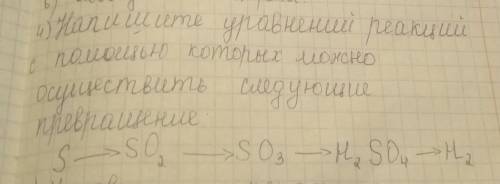 4) Напишите уравнений реакций
с помощью которых можно
осуществить следующие
превращение
S → SO₂ → SO₃ → H₂SO₄ → H₂